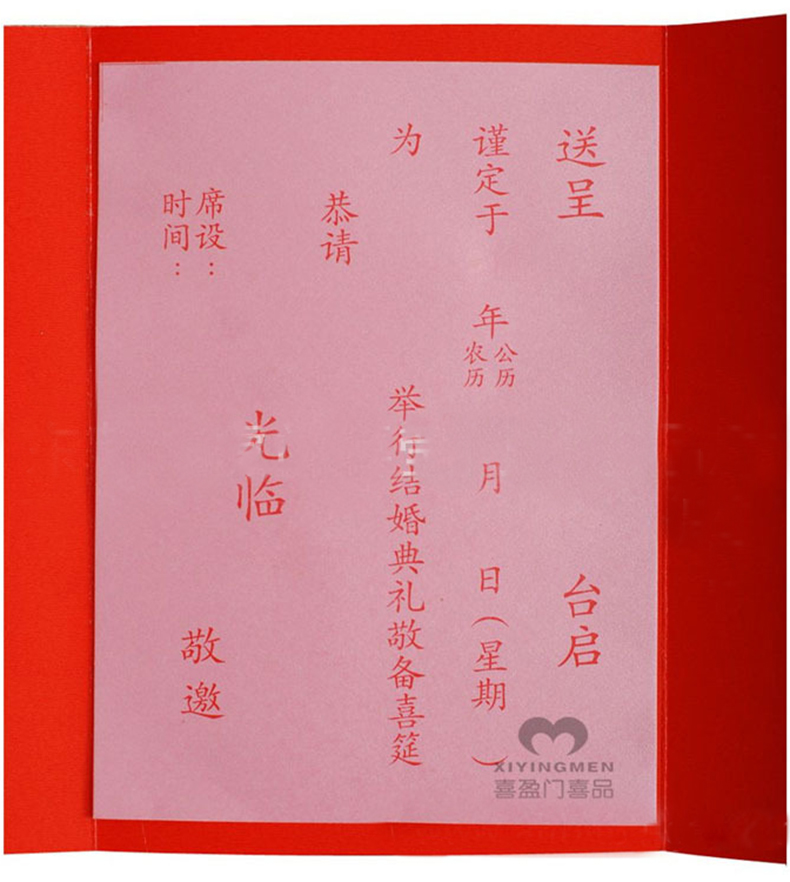 送呈 台启
谨定于 年 公历 农历 月 日(星期 )
为 举行结婚典礼敬备喜筵
恭请
光临
席设:
敬邀
时间:
XIYINGMEN
喜盈门喜品